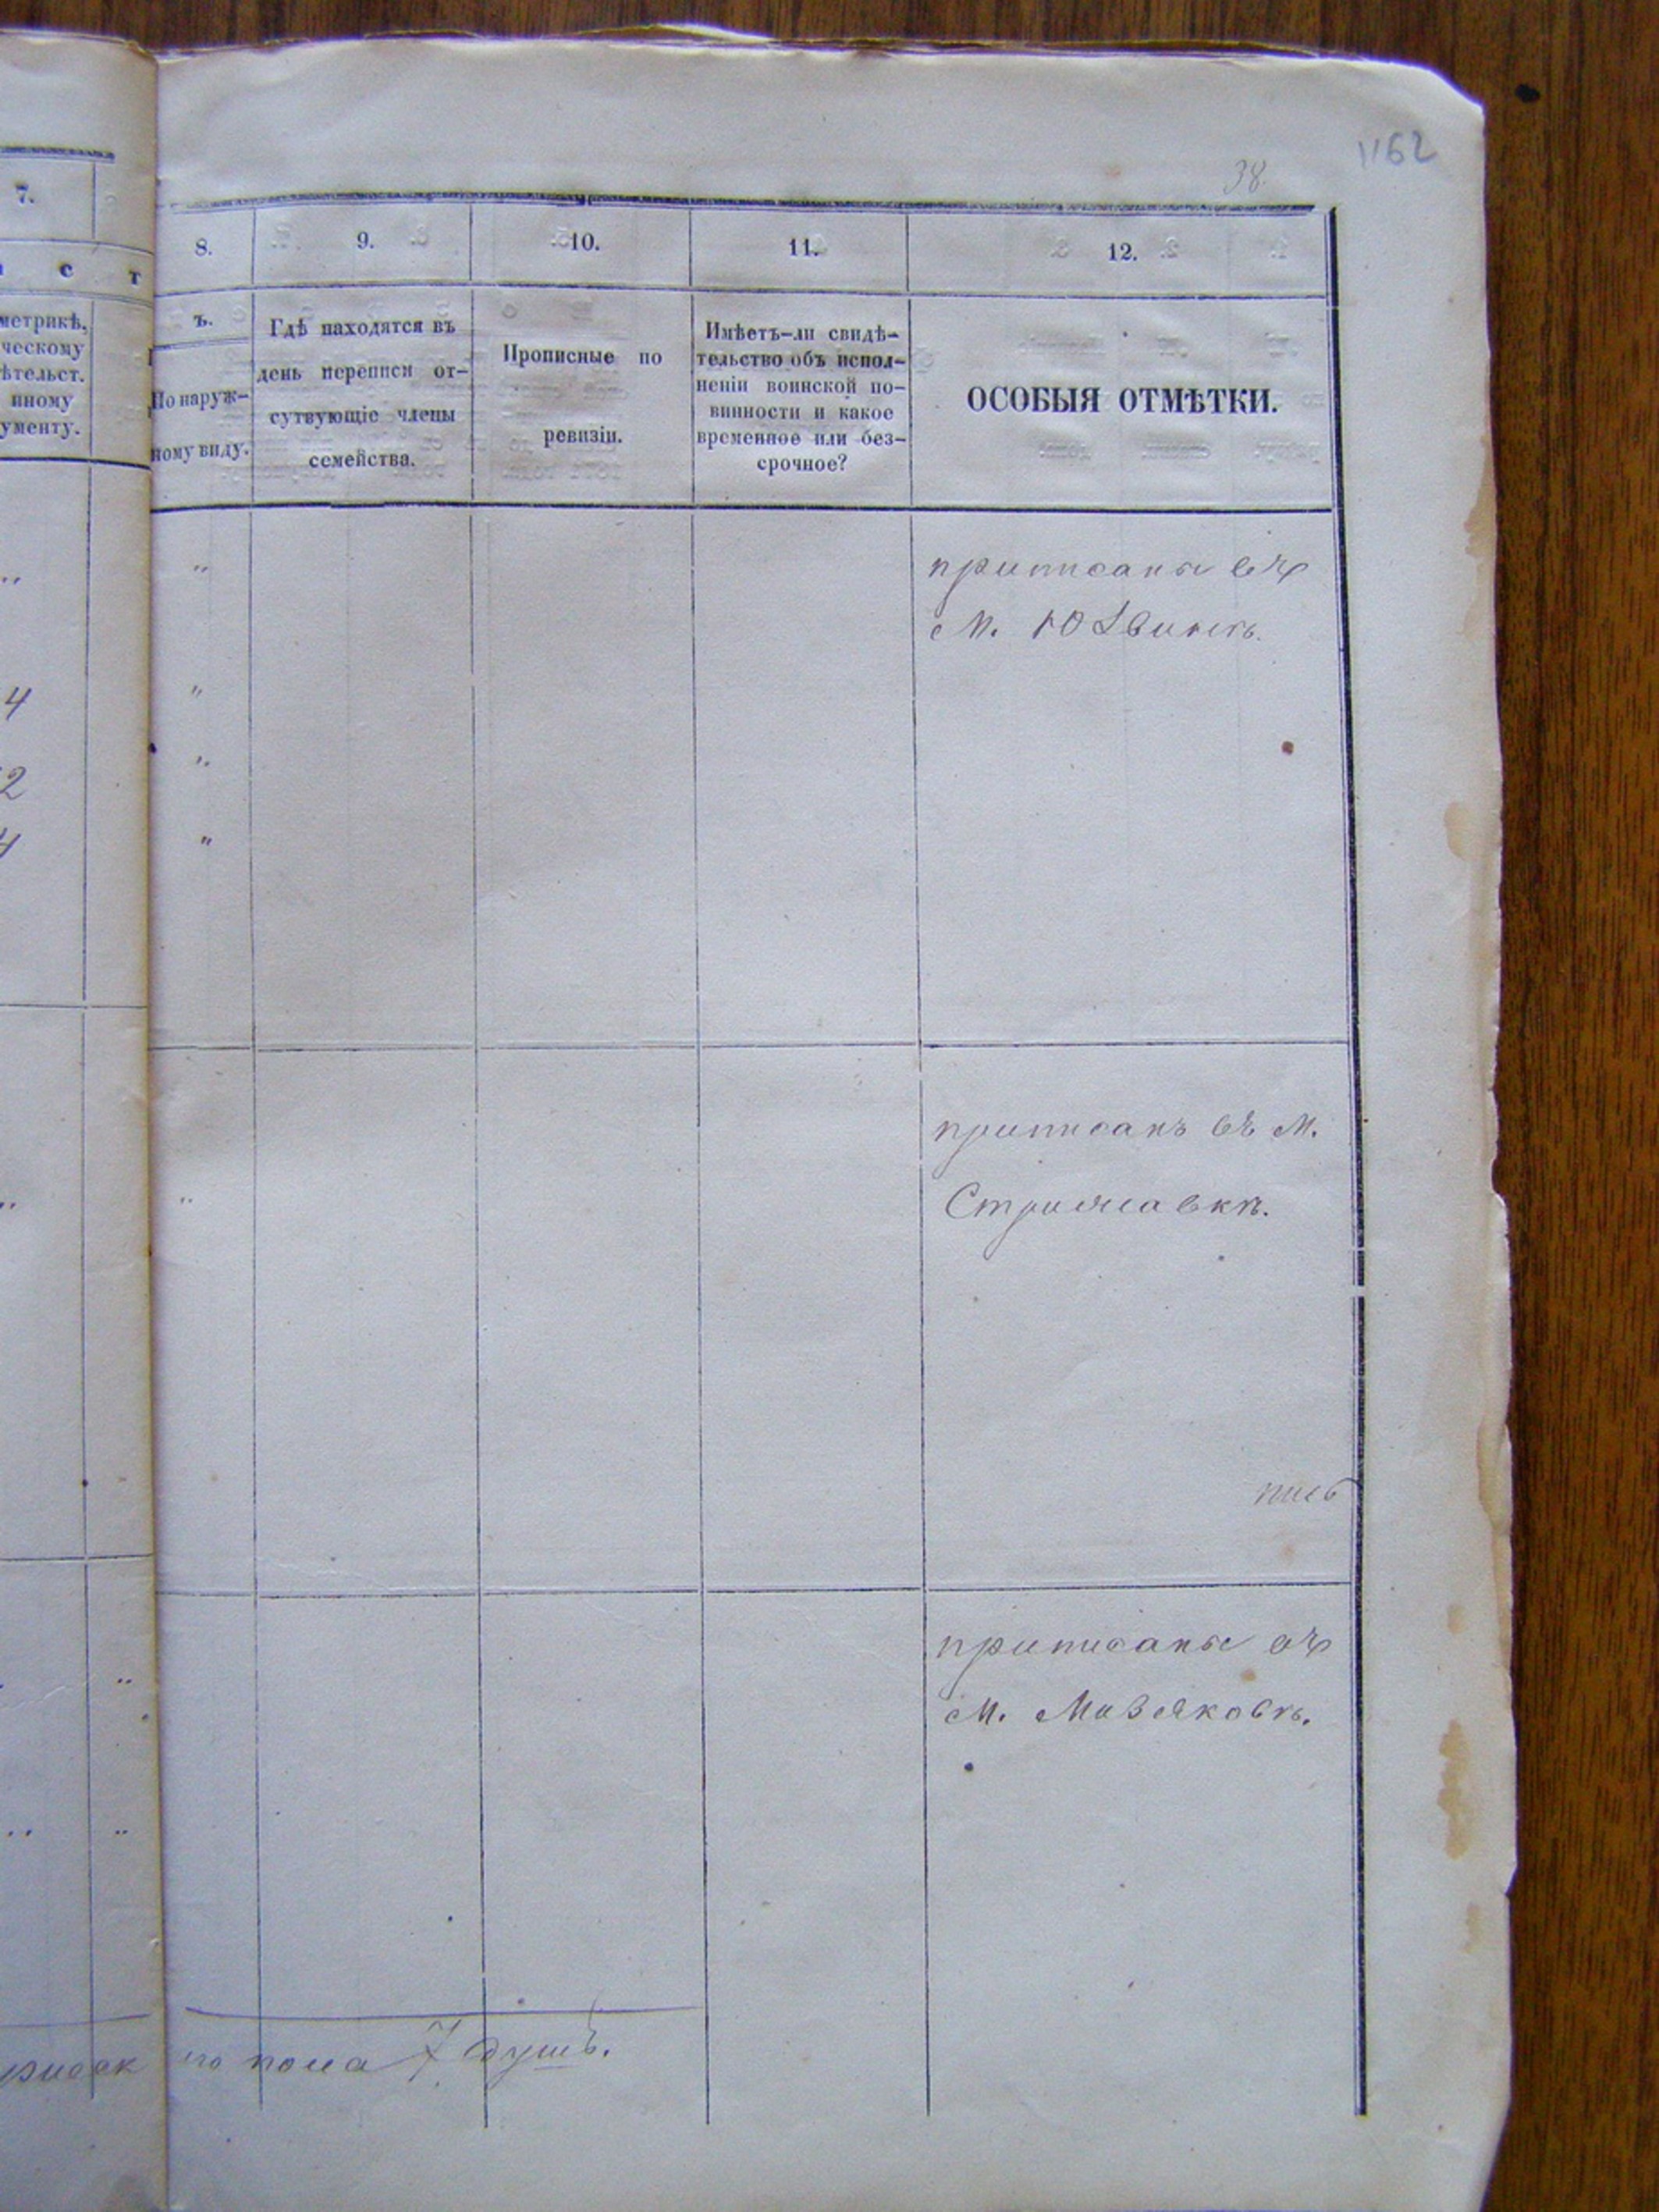 1162
38
7.
8.
9.
10.
11.
12.
с т
ъ.
метрикѣ,
ческому
ѣтельст.
иному
ументу.
По наруж-
ному виду.
Гдѣ находятся въ
день переписи от-
сутвующіе члены
семейства.
Прописные по
ревизіи.
Имѣетъ-ли свидѣ-
тельство объ испол-
неніи воинской по-
винности и какое
временное или без-
срочное?
ОСОБЫЯ ОТМѢТКИ.
„
„
приписаны въ
М. Юзвинѣ.
4
„
2
„
4
„
приписанъ въ М.
Стрижавкѣ.
„
„
приписаны въ
М. Мизяковѣ.
„
„
„
го пола 7 душъ.